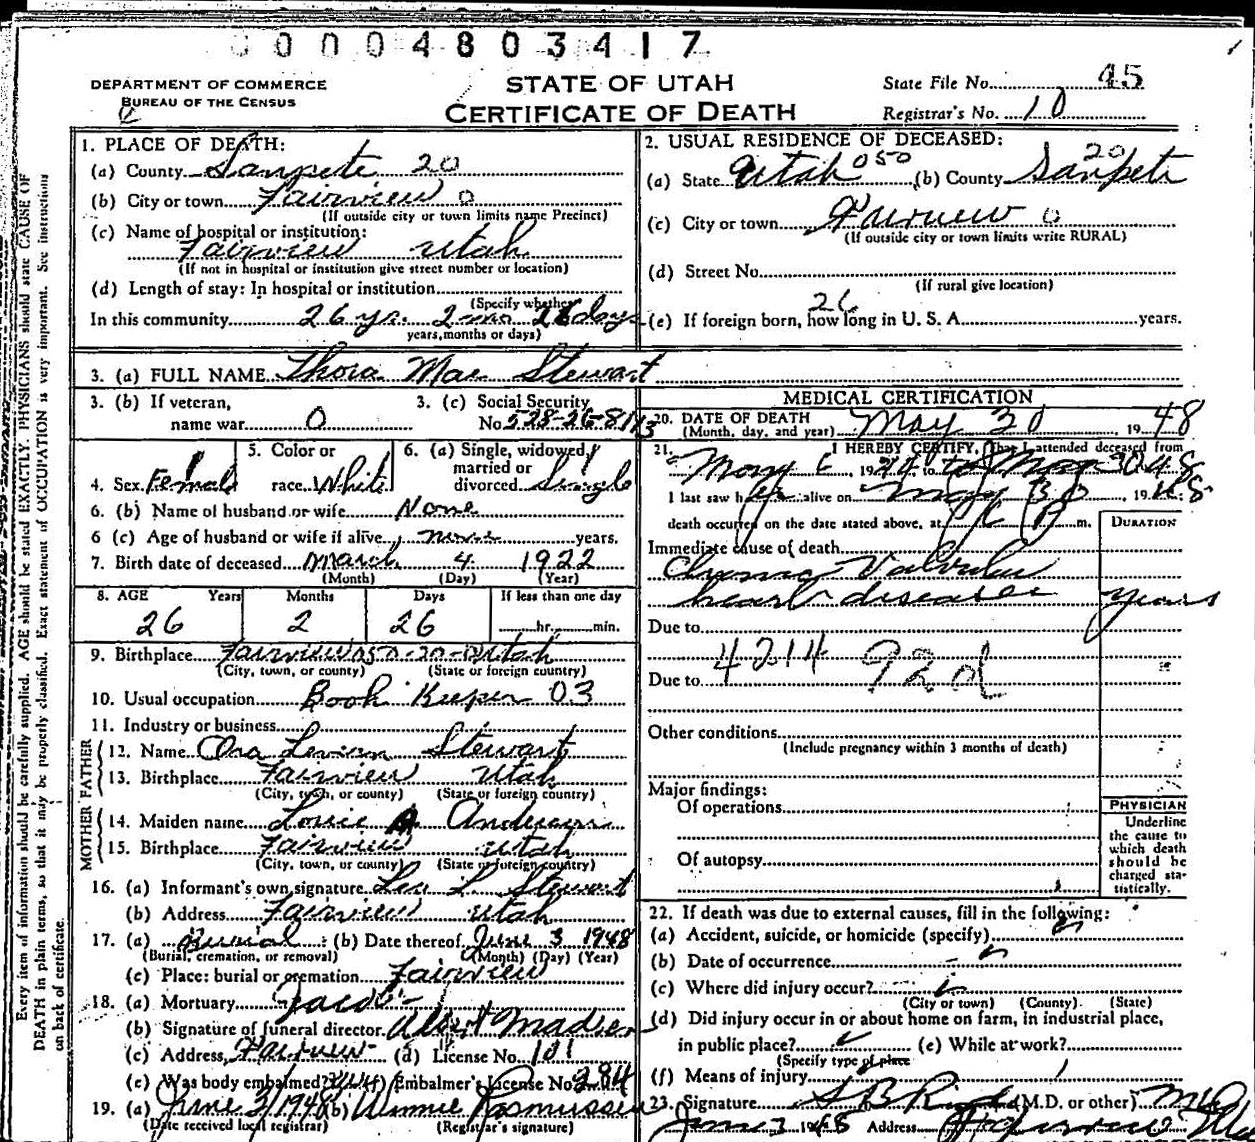 00004803417
DEPARTMENT OF COMMERCE
BUREAU OF THE CENSUS
STATE OF UTAH
CERTIFICATE OF DEATH
State File No. 45
Registrar's No. 10
1. PLACE OF DEATH:
(a) County Sanpete 20
(b) City or town Fairview 0
(If outside city or town limits name Precinct)
(c) Name of hospital or institution:
Fairview Utah
(If not in hospital or institution give street number or location)
(d) Length of stay: In hospital or institution
(Specify whether
In this community 26 yr. 2 mo 26 days
years, months or days)
2. USUAL RESIDENCE OF DECEASED:
(a) State Utah 050 (b) County Sanpete 20
(c) City or town Fairview 0
(If outside city or town limits write RURAL)
(d) Street No.
(If rural give location)
26
(e) If foreign born, how long in U. S. A. years.
3. (a) FULL NAME Thora Mae Stewart
3. (b) If veteran, name war 0
3. (c) Social Security No. 528-26-8143
4. Sex Female
5. Color or race White
6. (a) Single, widowed, married or divorced Single
6. (b) Name of husband or wife None
6 (c) Age of husband or wife if alive none years.
7. Birth date of deceased March 4 1922
(Month) (Day) (Year)
8. AGE Years Months Days If less than one day
26 2 26 hr. min.
9. Birthplace Fairview 050-20-0 Utah
(City, town, or county) (State or foreign country)
10. Usual occupation Book Keeper 03
11. Industry or business
FATHER
12. Name Ora Stewart
13. Birthplace Fairview Utah
(City, town, or county) (State or foreign country)
MOTHER
14. Maiden name Louie A Anderson
15. Birthplace Fairview Utah
(City, town, or county) (State or foreign country)
16. (a) Informant's own signature L. Stewart
(b) Address Fairview Utah
17. (a) Burial (b) Date thereof June 3 1948
(Burial, cremation, or removal) (Month) (Day) (Year)
(c) Place: burial or cremation Fairview
18. (a) Mortuary Jacobs
(b) Signature of funeral director Albert Madsen
(c) Address Fairview (d) License No. 101
(e) Was body embalmed? (f) Embalmer's License No. 284
19. (a) June 3/1948 (b) Winnie Rasmussen
(Date received local registrar) (Registrar's signature)
MEDICAL CERTIFICATION
20. DATE OF DEATH May 30 1948
(Month, day, and year)
21. I HEREBY CERTIFY, That I attended deceased from
19 to May 30 48
I last saw her alive on May 30, 1948
death occurred on the date stated above, at P m.
DURATION
Immediate cause of death
Chronic Valvular
heart disease years
Due to
4214 92d
Due to
Other conditions
(Include pregnancy within 3 months of death)
Major findings:
Of operations
Of autopsy
PHYSICIAN
Underline
the cause to
which death
should be
charged sta-
tistically.
22. If death was due to external causes, fill in the following:
(a) Accident, suicide, or homicide (specify)
(b) Date of occurrence
(c) Where did injury occur?
(City or town) (County) (State)
(d) Did injury occur in or about home on farm, in industrial place,
in public place? (e) While at work?
(Specify type of place
(f) Means of injury
23. Signature (M.D. or other) MD
June 3 1948 Address
Every item of information should be carefully supplied. AGE should be stated EXACTLY. PHYSICIANS should state CAUSE OF
DEATH in plain terms, so that it may be properly classified. Exact statement of OCCUPATION is very important. See instructions
on back of certificate.